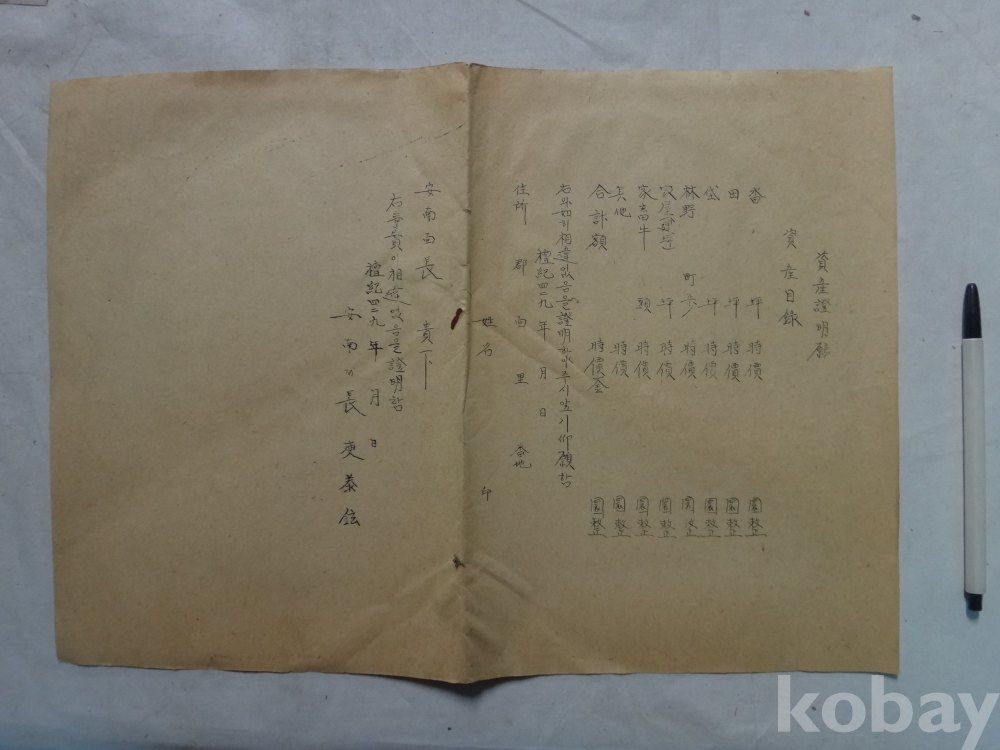 資產證明願
資產目錄
畓 坪 時價 圜整
田 坪 時價 圜整
垈 坪 時價 圜整
林野 町步 時價 圜整
家屋 坪 時價 圜整
家畜牛 頭 時價 圜整
其他 時價 圜整
合計額 時價金 圜整
右와如히相違없음을證明하야주시압기仰願함
檀紀四二九 年 月 日
住所 郡 面 里 番地
姓名 印
安南面長 貴下
右事實이相違없음을證明함
檀紀四二九 年 月 日
安南面長
kobay